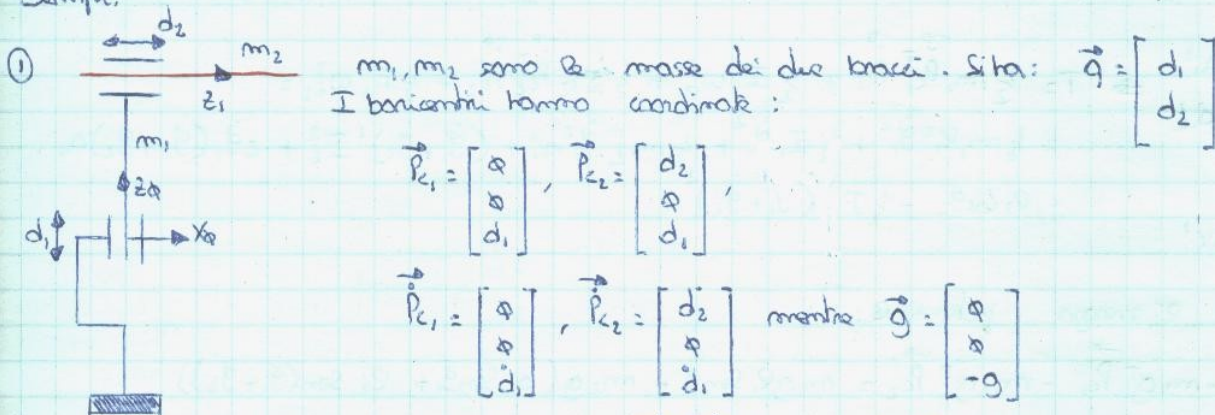 ①
d₂
m₂
z₁
m₁
z∅
d₁
x∅
m₁, m₂ sono le masse dei due bracci. Si ha: q⃗ = [ d₁ d₂ ]
I baricentri hanno coordinate :
P⃗c₁ = [ ∅ ∅ d₁ ] , P⃗c₂ = [ d₂ ∅ d₁ ] ,
Ṗ⃗c₁ = [ ∅ ∅ ḋ₁ ] , Ṗ⃗c₂ = [ ḋ₂ ∅ ḋ₁ ] mentre g⃗ = [ ∅ ∅ -g ]